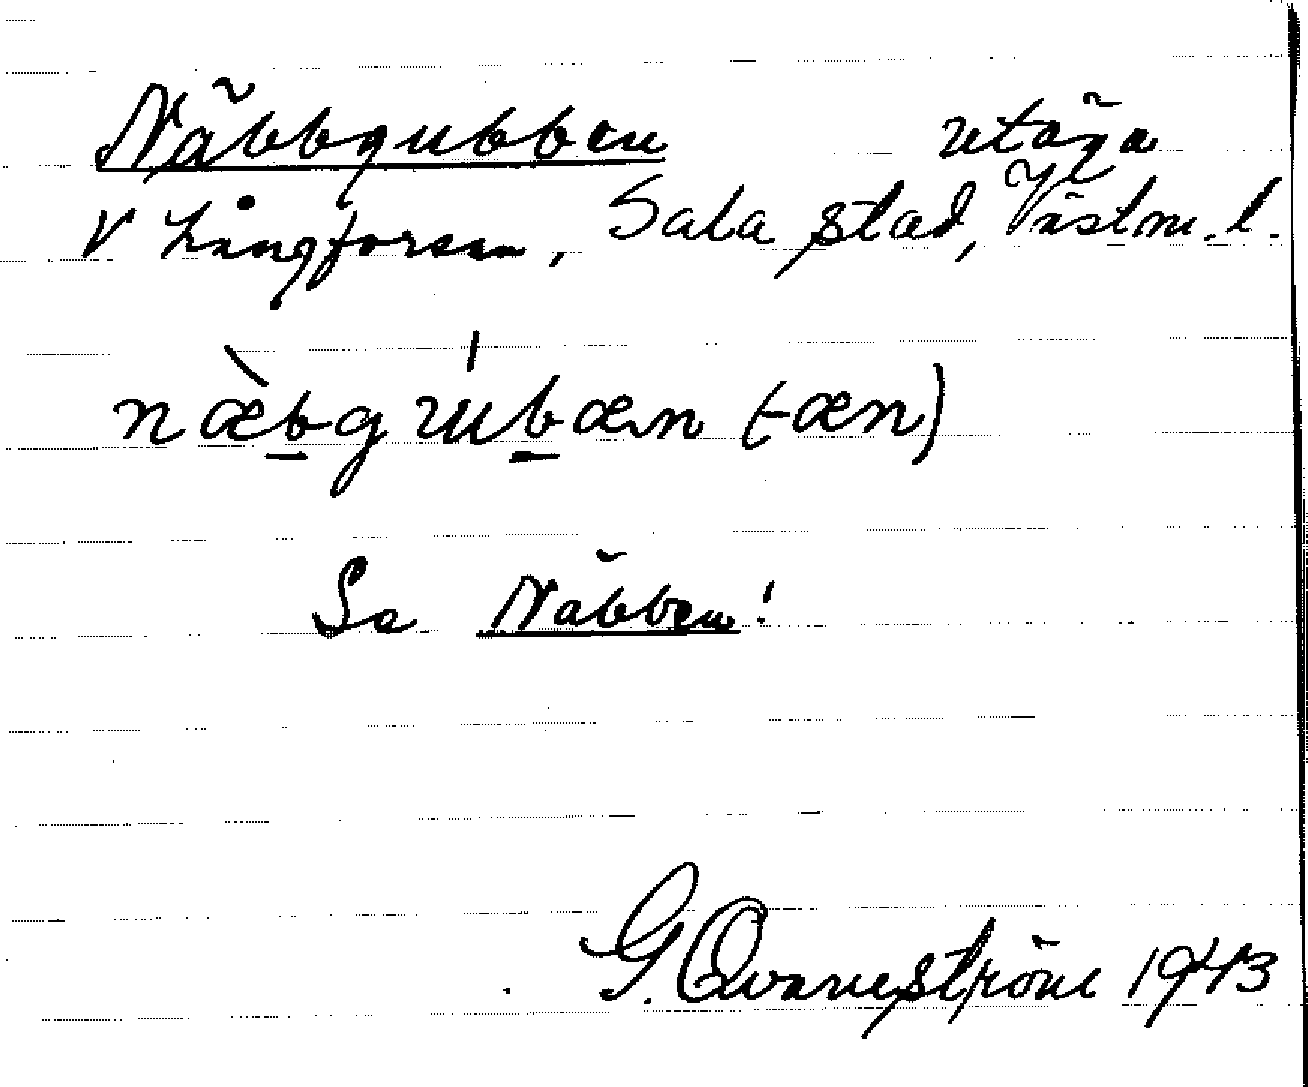 Näbbgubben utäga
V Långforsen, Sala stad, Västm. l.
næ̀bgúbæn (-æn)
Se Näbben!
G. Qvarnström 1943